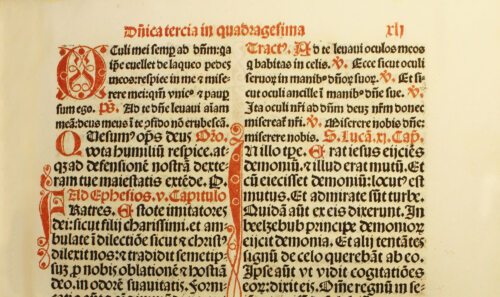 Dñica tercia in quadragesima xlj
OCuli mei semp ad dñm: qa
ipe euellet de laqueo pedes
meos: respice in me ⁊ mise
rere mei: qm̃ vnicꝰ ⁊ paup
sum ego. Ps. Ad te dñe leuaui aĩam
meã: deus meus ĩ te ꝯfido nõ erubescã.
QUesumꝰ oꝑs deus Oro.
vota humiliũ respice. at-
qꝫ ad defensionẽ nostrã dex-
teram tue maiestatis extẽde. P.
Ad Ephesios. v. Capitulo
FRatres. Estote imitatores
dei: sicut filij charissimi. et am
bulate ĩ dilectiõe sicut ⁊ christꝰ
dilexit nos: ⁊ tradidit semetip
sũꝫ ꝓ nobis oblationẽ ⁊ hostiã
deo, in odorẽ suauitatis. Forni
Tractꝰ. Ad te leuaui oculos meos
q habitas in celis. ℣. Ecce sicut oculi
seruoꝝ in manibꝰ dñoꝝ suoꝝ. ℣. Et si
cut oculi ancille ĩ manibꝰ dñe sue. ℣.
Ita oculi nr̃i ad dñm deuꝫ nr̃m donec
misereat nr̃i. ℣. Miserere nobis dñe:
miserere nobis. S. Lucã. xj. Cap.
IN illo tpe. Erat iesus eijciẽs
demoniũ, ⁊ illud erat mutũ. Et
cũ eiecisset demoniũ: locutꝰ est
mutus. Et admirate sũt turbe.
Quidã aũt ex eis dixerunt. In
beelzebub principe demonioꝝ
eijcit demonia. Et alij tentãtes
signũ de celo querebãt ab eo.
Ipse aũt vt vidit cogitatiões
eoꝝ: dixit eis. Omne regnũ in se